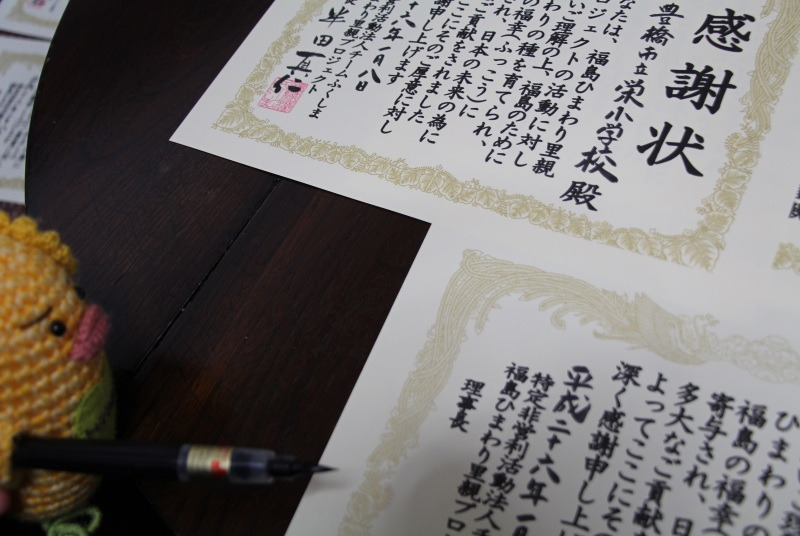 感謝状
豊橋市立栄小学校殿
なたは、福島ひまわり里親
ロジェクトの活動に対し
いご理解の上、福島のために
わりの種を育てられ、
の福幸(ふっこう)に
、日本の未来の為に
貢献をされました
ここにそのご厚意に対し
謝申し上げます
十六年一月八日
利活動法人チームふくしま
わり里親プロジェクト
半田真仁
いご理
ひまわりの
福島の福幸
寄与され、日
多大なご貢献
よってここにそ
深く感謝申し上
平成二十六年一月
特定非営利活動法人チ
福島ひまわり里親プロ
理事長